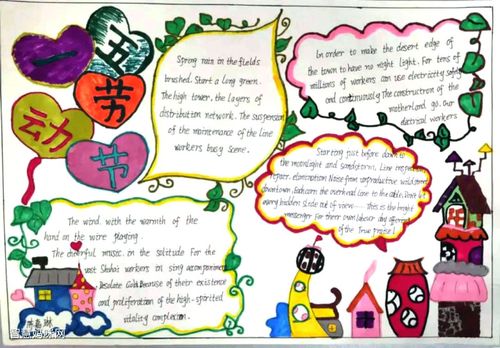 五一
劳
动
节
Spring rain in the fields
brushed. Start a long green.
The high tower. the layers of
distribution network. The suspension
of the maintenance of the line
workers busy scene.
In order to make the desert edge of
the town to have no night light. For tens of
millions of workers can use electricity safely
and continuously The construction of the
motherland go. Our
electrical workers
Starting just before dawn to
the moonlight and sandstorm. Line inspection
repair. elimination Noise from unproductive wild
downtown. Each corn the overhead line to the cable. Dance
every hidden side out of view. This is the bright
messenger For their own labour day offering
of the True praise!
The wind with the warmth of the
hand on the wire playing.
The cheerful music. in the solitude For the
vast workers in sing accompaniment
Desolate Gobi Because of their existence
and proliferation of the high-spirited
vitality complexion.
智慧妈咪网